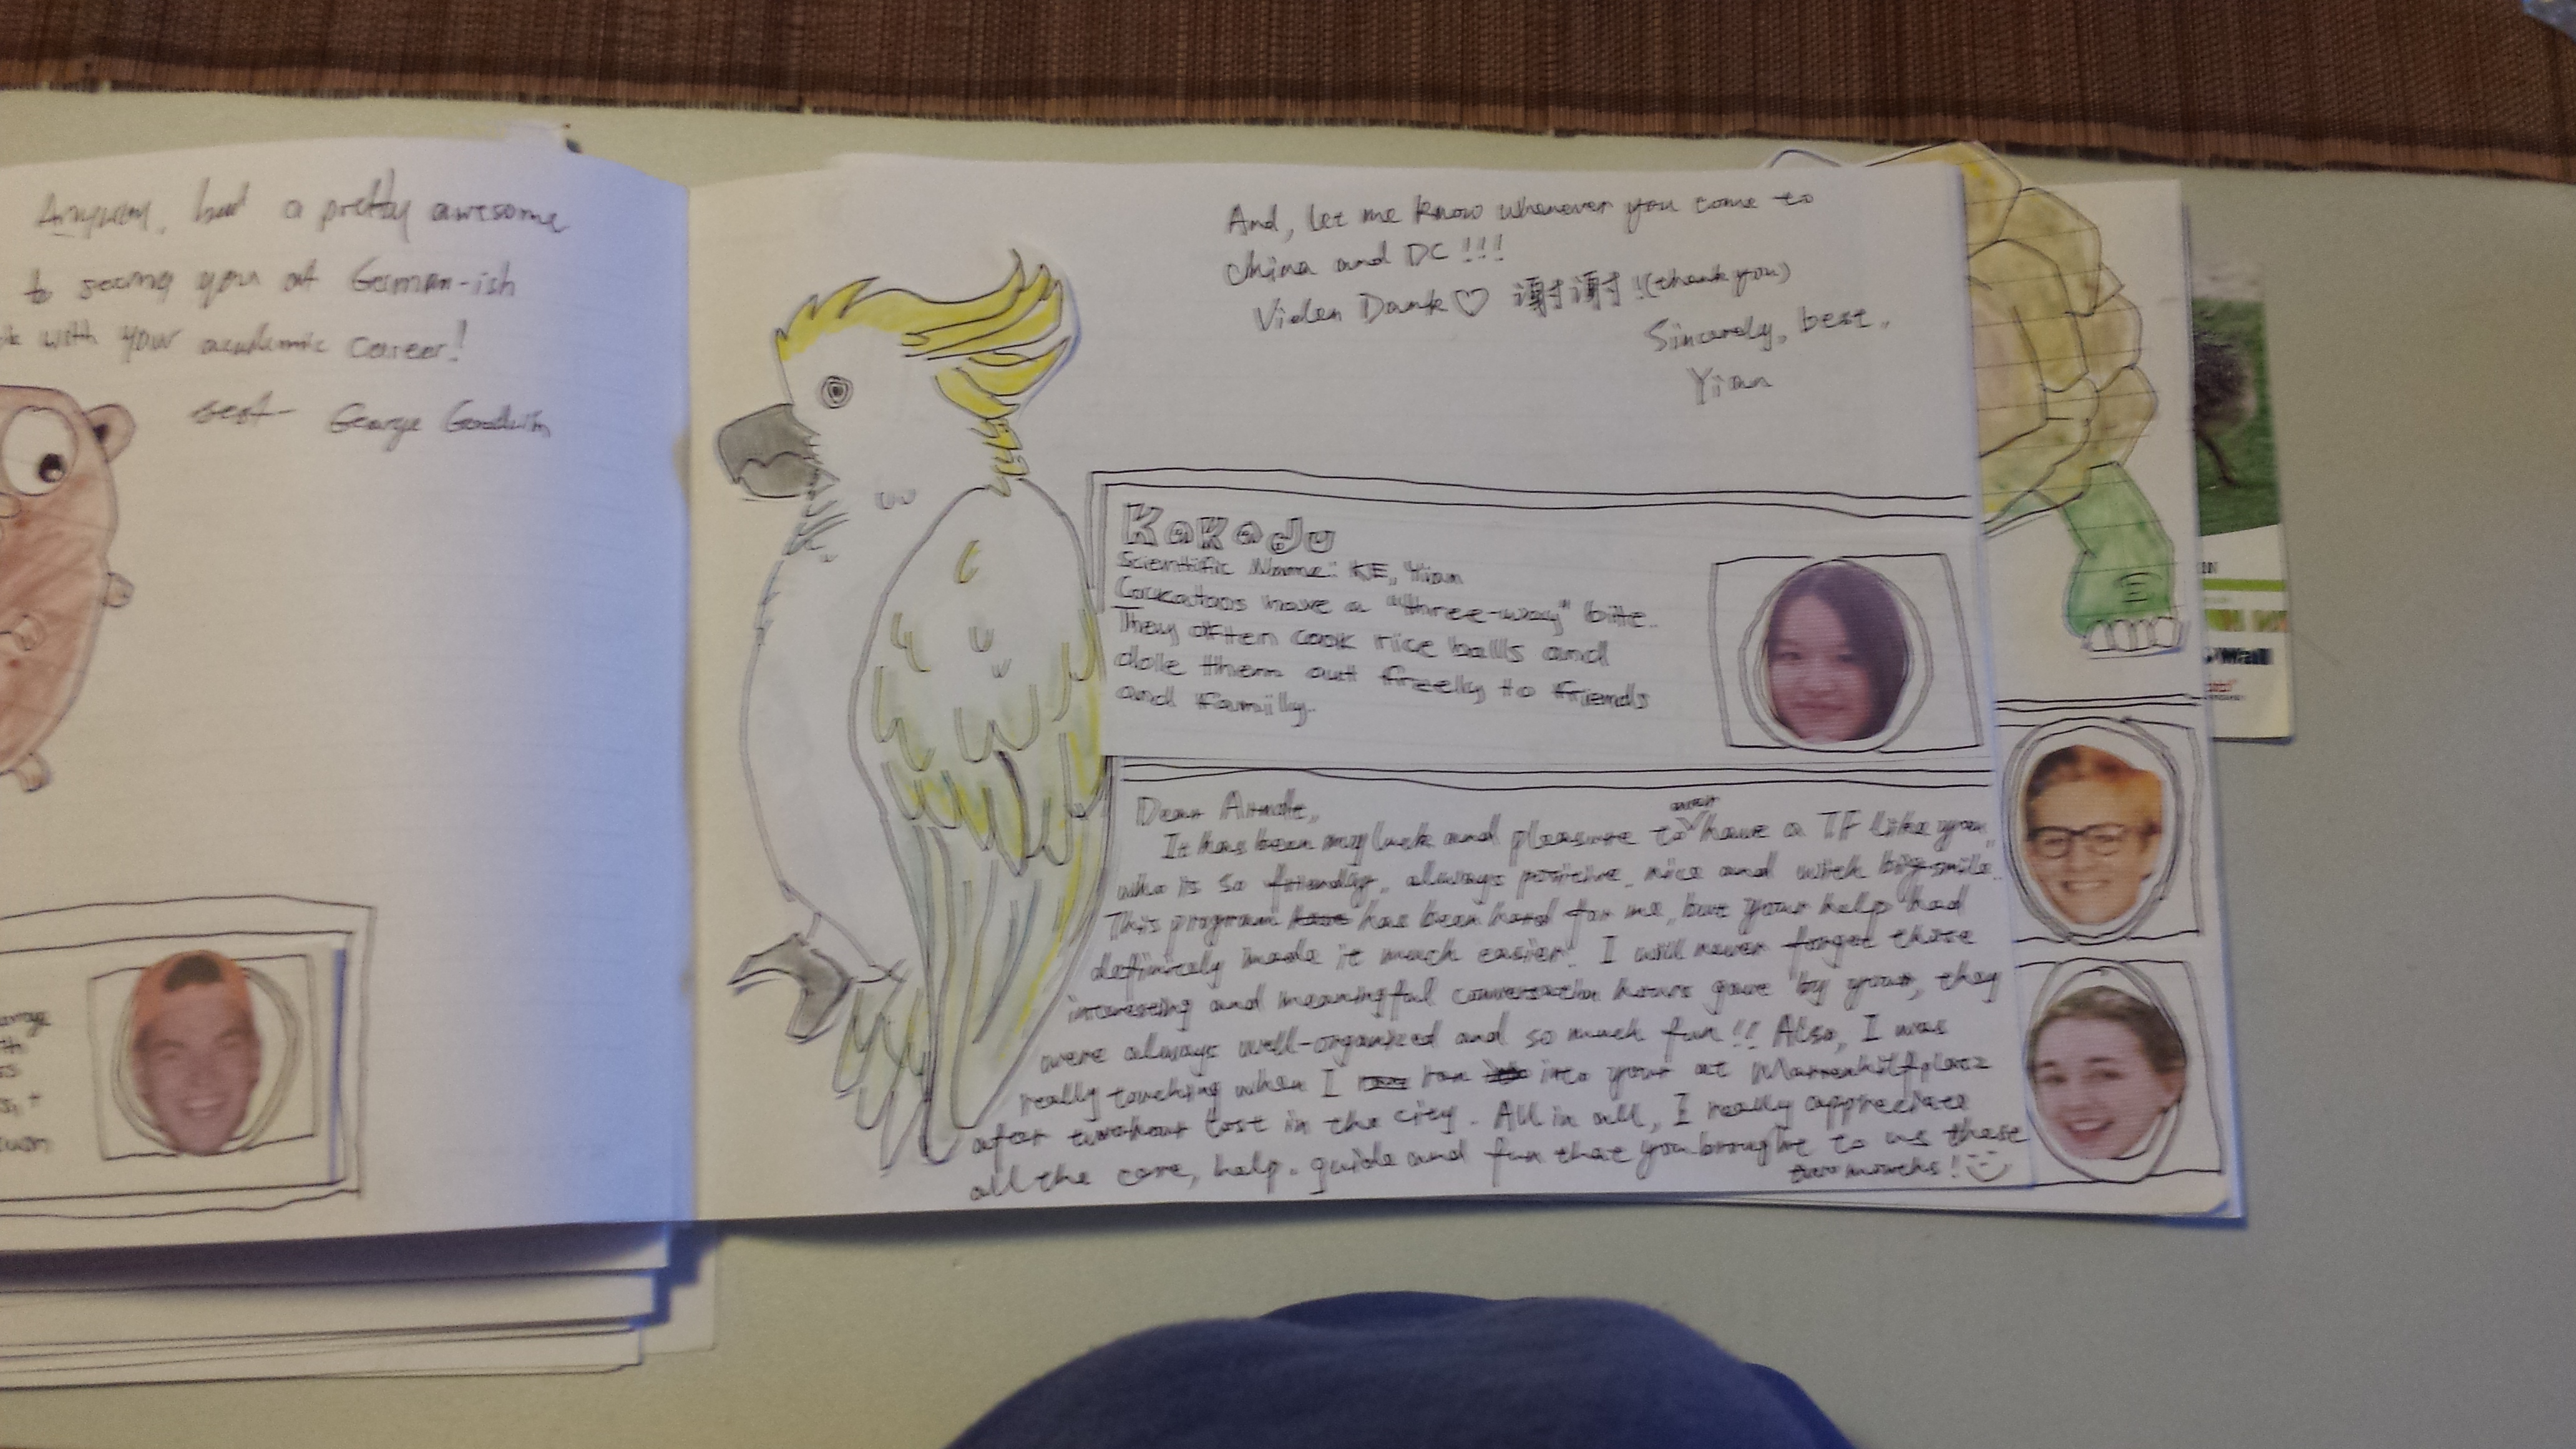 Anyway, had a pretty awesome
to seeing you at German-ish
with your academic career!
best George Goodwin
And, let me know whenever you come to
China and DC!!!
Vielen Dank♡ 谢谢!(thank you)
Sincerely, best,
Yian
KaKaDu
Scientific Name: KE, Yian
Cockatoos have a "three-way" bite.
They often cook rice balls and
dole them out freely to friends
and family.
Dear
It has been my luck and pleasure to have a TF like you,
who is so friendly, always positive, nice and with big smile.
This program has been hard for me, but your help had
definitely made it much easier! I will never forget those
interesting and meaningful conversation hours gave by your, they
were always well-organized and so much fun!! Also, I was
really touching when I ran into your at
after lost in the city. All in all, I really appreciate
all the care, help, guide and fun that you brought to us these
two months!